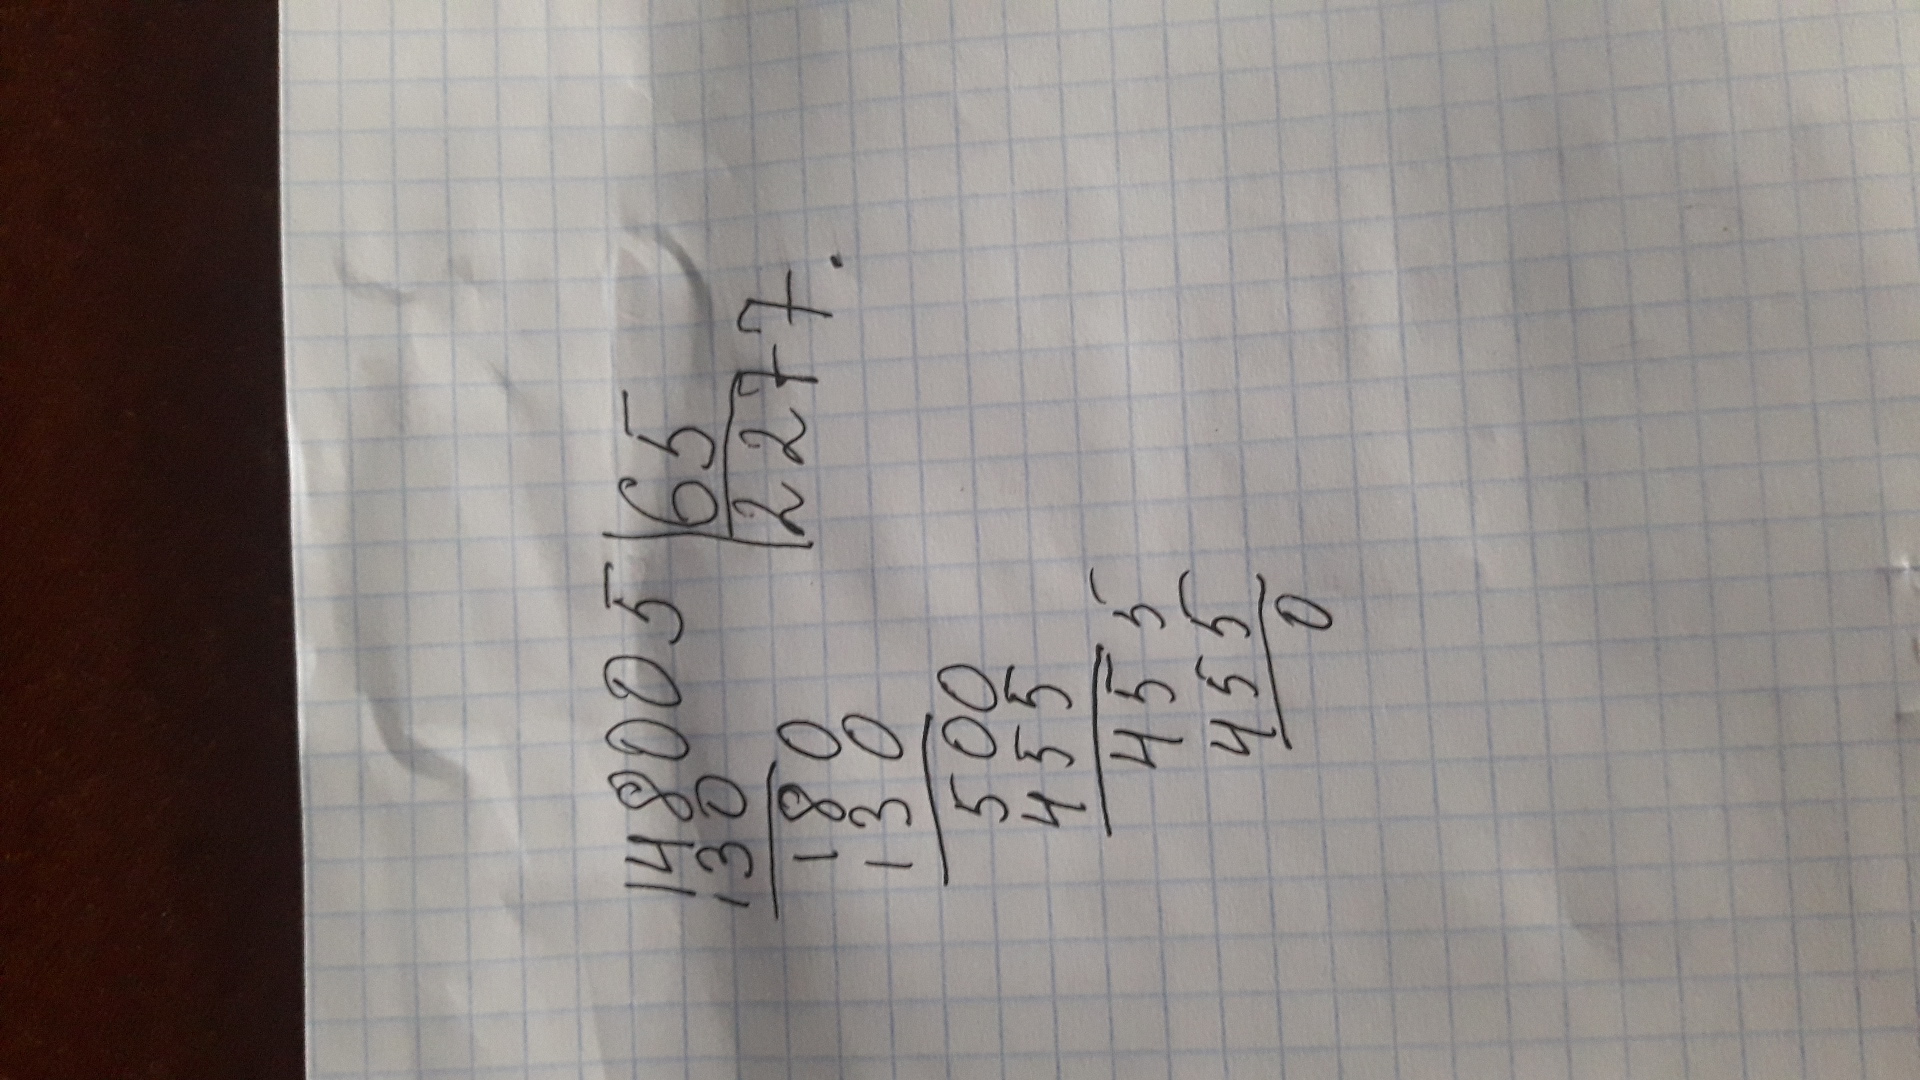 148005 65
130 2277.
180
130
500
455
455
455
0